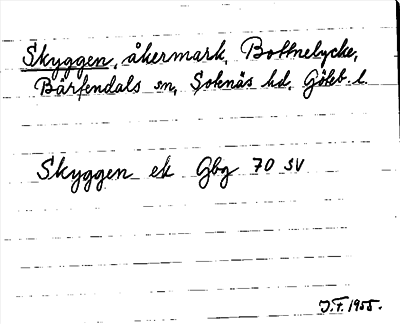 Skyggen, åkermark, Bottnelycke,
Bärfendals sn, Sotenäs hd, Göteb. l.
Skyggen ek Gbg 70 SV
J.F. 1955.